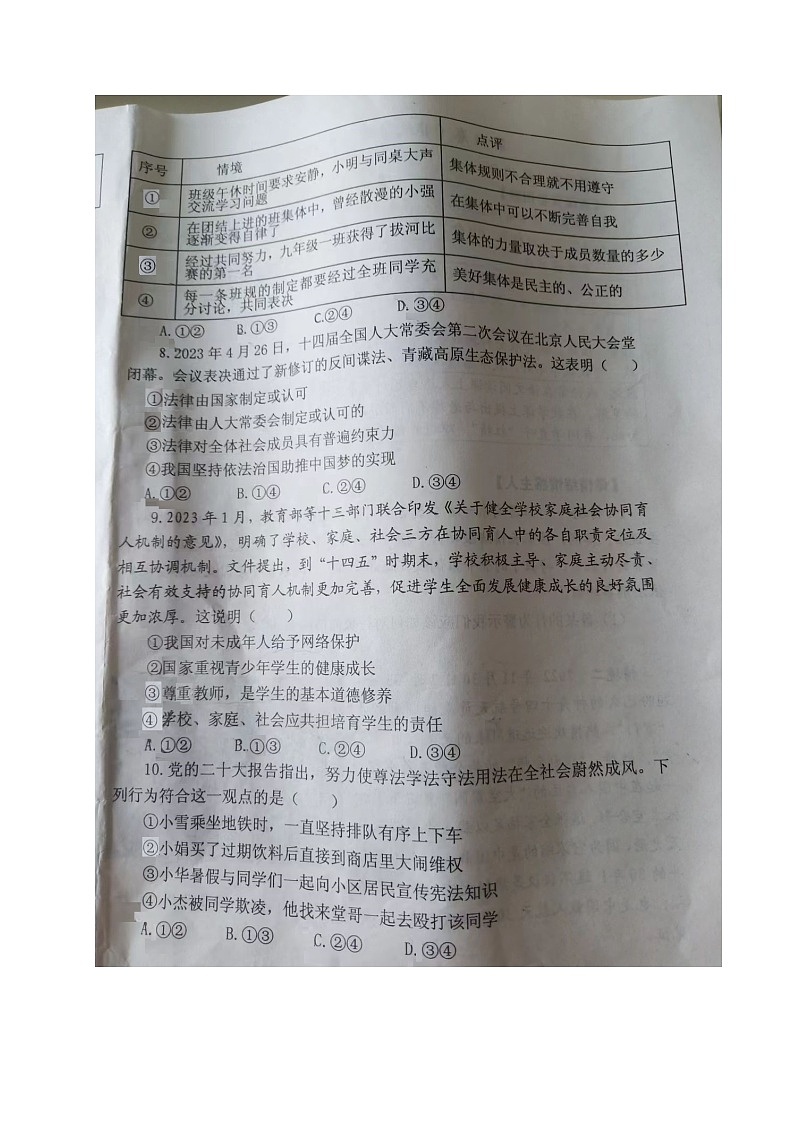 序号 情境 点评
① 班级午休时间要求安静，小明与同桌大声
交流学习问题
集体规则不合理就不用遵守
② 在团结上进的班集体中，曾经散漫的小强
逐渐变得自律了
在集体中可以不断完善自我
③ 经过共同努力，九年级一班获得了拔河比
赛的第一名
集体的力量取决于成员数量的多少
④ 每一条班规的制定都要经过全班同学充
分讨论，共同表决
美好集体是民主的、公正的
A.①② B.①③ C.②④ D.③④
8.2023年4月26日，十四届全国人大常委会第二次会议在北京人民大会堂
闭幕。会议表决通过了新修订的反间谍法、青藏高原生态保护法。这表明（ ）
①法律由国家制定或认可
②法律由人大常委会制定或认可的
③法律对全体社会成员具有普遍约束力
④我国坚持依法治国助推中国梦的实现
A.①② B.①④ C.②④ D.③④
9.2023年1月，教育部等十三部门联合印发《关于健全学校家庭社会协同育
人机制的意见》，明确了学校、家庭、社会三方在协同育人中的各自职责定位及
相互协调机制。文件提出，到“十四五”时期末，学校积极主导、家庭主动尽责、
社会有效支持的协同育人机制更加完善，促进学生全面发展健康成长的良好氛围
更加浓厚。这说明（ ）
①我国对未成年人给予网络保护
②国家重视青少年学生的健康成长
③尊重教师，是学生的基本道德修养
④学校、家庭、社会应共担培育学生的责任
A.①② B.①③ C.②④ D.③④
10.党的二十大报告指出，努力使尊法学法守法用法在全社会蔚然成风。下
列行为符合这一观点的是（ ）
①小雪乘坐地铁时，一直坚持排队有序上下车
②小娟买了过期饮料后直接到商店里大闹维权
③小华暑假与同学们一起向小区居民宣传宪法知识
④小杰被同学欺凌，他找来堂哥一起去殴打该同学
A.①② B.①③ C.②④ D.③④